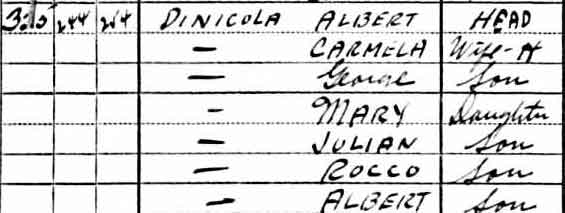 244 254 DINICOLA ALBERT HEAD
— CARMELA Wife-H
— George Son
— MARY Daughter
— JULIAN Son
— ROCCO Son
— ALBERT Son